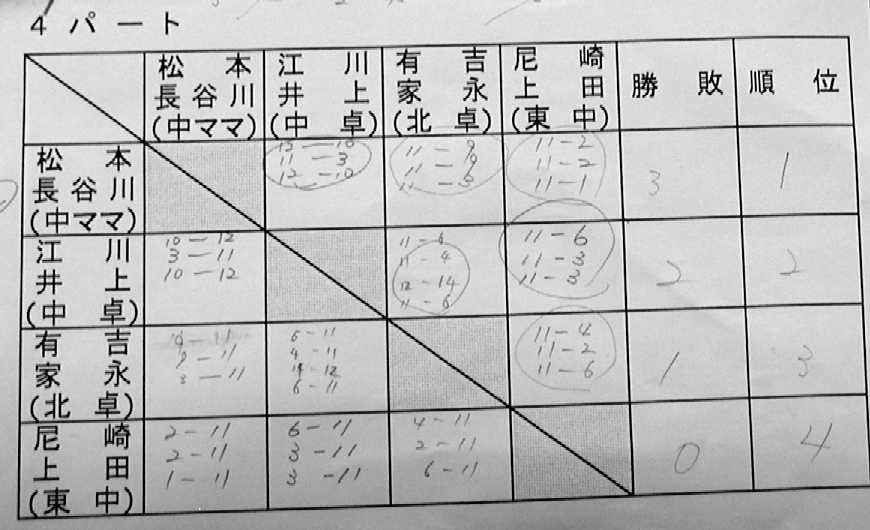 4 パート
松本 江川 有吉 尼崎
長谷川 井上 家永 上田 勝敗 順位
(中ママ) (中卓) (北卓) (東中)
松本
長谷川
(中ママ)
12-10 11-9 11-2
11-3 11-9 11-2
12-10 11-3 11-1
3 1
江川
井上
(中卓)
10-12 11-6 11-6
3-11 11-4 11-3
10-12 12-14 11-3
11-6
2 2
有吉
家永
(北卓)
9-11 6-11 11-4
3-11 4-11 11-2
6-11 11-6
1 3
尼崎
上田
(東中)
2-11 6-11 4-11
2-11 3-11 2-11
1-11 3-11 6-11
0 4